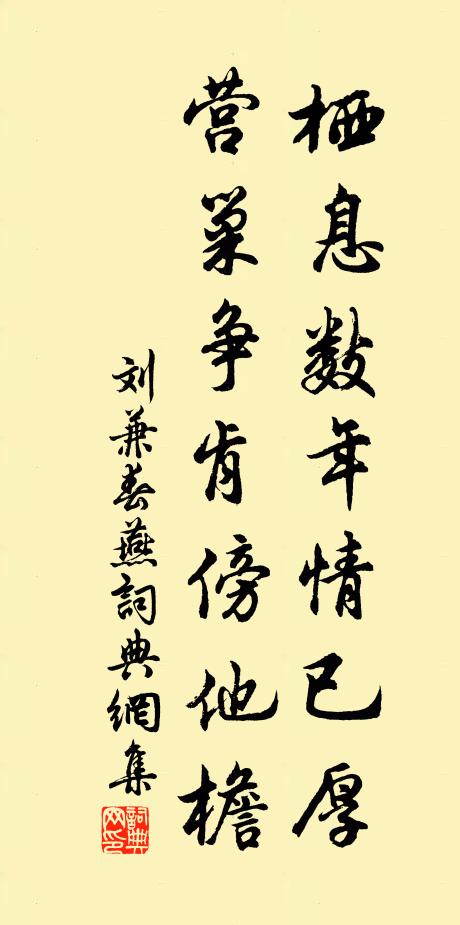 栖息数年情已厚
营巢争肯傍他檐
刘兼春燕詞典網集
詞典网印